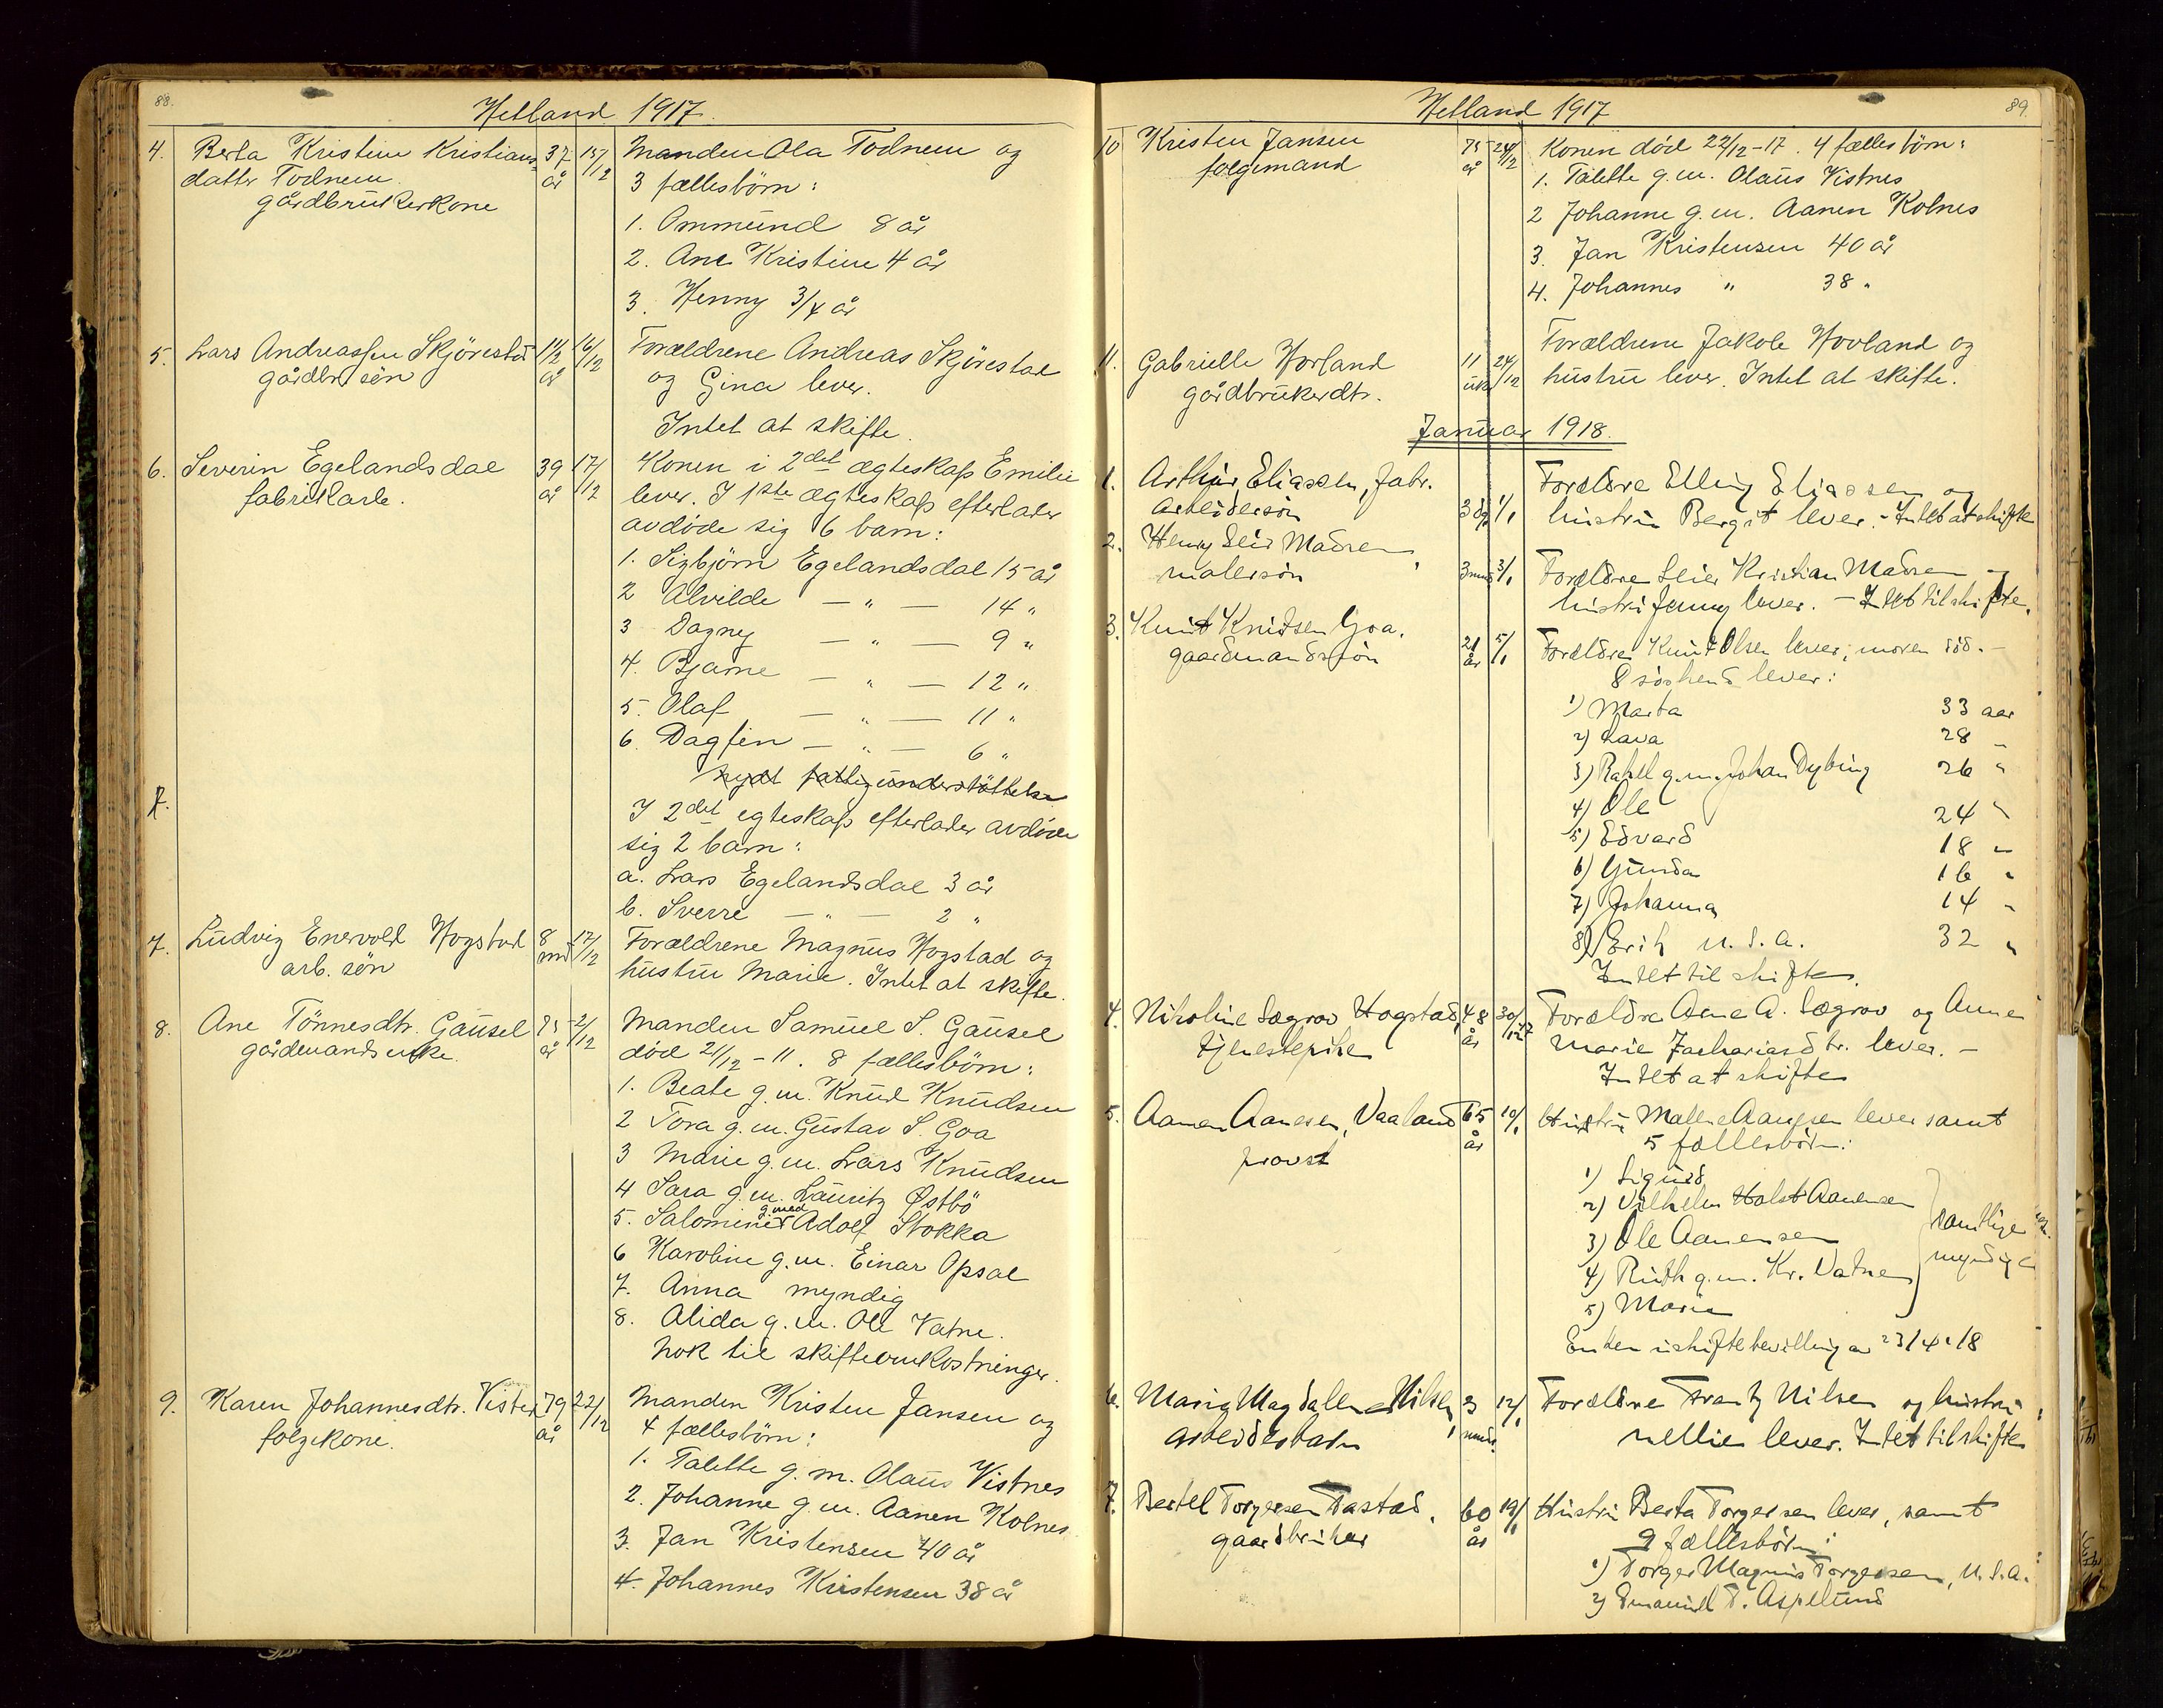 88.
Hetland 1917.
4. Berta Kristine Kristians- 37 15/12 Manden Ola Todnem og
datter Todnem år 3 fællesbörn:
gårdbrukerkone
1. Ommund 8 år
2. Ane Kristine 4 år
3. Henny 3/4 år
5. Lars Andreassen Skjörestad 1 1/2 16/12 Forældrene Andreas Skjörestad
gårdbr. sön år og Gina lever.
Intet at skifte.
6. Severin Egelandsdal 39 17/12 Konen i 2det ægteskap Emilie
fabrikarb. år lever. I 1ste ægteskap efterlader
avdöde sig 6 barn:
1. Sigbjörn Egelandsdal 15 år
2 Alvilde — " — 14 "
3 Dagny — " — 9 "
4. Bjarne — " — 12 "
5. Olaf — " — 11 "
6. Dagfin — " — 6 "
nydt fattigunderstöttelse
7. I 2det egteskap efterlader avdöde
sig 2 barn:
a. Lars Egelandsdal 3 år
b. Sverre — " — 2 "
7. Ludvig Enevold Hogstad 8 17/12 Forældrene Magnus Hogstad og
arb. sön md hustru Marie. Intet at skifte.
8. Ane Tönnesdtr. Gausel 75 21/12 Manden Samuel S. Gausel
gårdmandsenke. år död 21/12 - 11. 8 fællesbörn:
1. Beate g.m. Knud Knudsen
2 Tora g.m. Gustav S. Goa
3 Marie g.m. Lars Knudsen
4 Sara g.m. Lauritz Østbö
5. Salomine g. med Adolf Stokka
6 Karoline g.m. Einar Opsal
7. Anna myndig
8. Alida g.m. Ole Vatne.
Nok til skifteomkostninger.
9. Karen Johannesdtr. Viste 79 22/12 Manden Kristen Jansen og
folgekone. år 4 fællesbörn:
1. Talette g.m. Olaus Vistnes
2. Johanne g.m. Aanen Kolnes
3. Jan Kristensen 40 år
4. Johannes Kristensen 38 år
89.
Hetland 1917
10 Kristen Jansen 75 24/12 Konen död 22/12 - 17. 4 fællesbörn:
folgemand år 1. Talette g.m. Olaus Vistnes
2 Johanne g.m. Aanen Kolnes
3. Jan Kristensen 40 år
4. Johannes " 38 "
11. Gabrielle Hovland 11 24/12 Forældrene Jakob Hovland og
gårdbrukerdtr. uk hustru lever. Intet at skifte.
Januar 1918.
1. Arthur Eliassen, fabr. Forældre Elling Eliassen og
arbeidersön 3 dg 1/1 hustru Bergit lever. - Intet at skifte
2. Henry Leid Madsen,
malersön 3 mnd 3/1 Forældre Leier Kristian Madsen og
hustru Jenny lever. - Intet til skifte.
3. Knut Knutsen Goa.
gaardmandssön 21 år 5/1 Forældre Knut Olsen lever, moren död. -
8 söskend lever:
1) Marta 33 aar
2) Lava 28 "
3) Rakel g.m. Johan Dybing 26 "
4) Ole 24 "
5) Edvard 18 "
6) Gunda 16 "
7) Johanna 14 "
8) Erik U.S.A. 32 "
Intet til skifte.
4. Nikoline Sægrov Hogstad, 48 30/12 17 Forældre Arne A. Sægrov og Anne
tjenestepike år Marie Zachariasdtr. lever. -
Intet at skifte
5. Aanen Aanesen, Vaaland 65 10/1 Hustru Malene Aanesen lever samt
provst år 5 fællesbörn:
1) Sigurd
2) Vilhelm Holst Aanensen
3) Ole Aanensen
4) Ruth g.m. Kr. Vatne
5) Marie
samtlige
myndige
Enken uskiftebevilling av 23/4-18
6. Maria Magdalene Nilsen, 3 12/1 Forældre Frantz Nilsen og hustru
arbeiderbarn mndr. Nellie lever. Intet til skifte
7. Bertel Torgersen Tastad. 60 19/1 Hustru Berta Torgersen lever, samt
gaardbruker år 9 fællesbörn:
1) Torger Magnus Torgersen, U.S.A.
2) Emanuel T. Aspelund